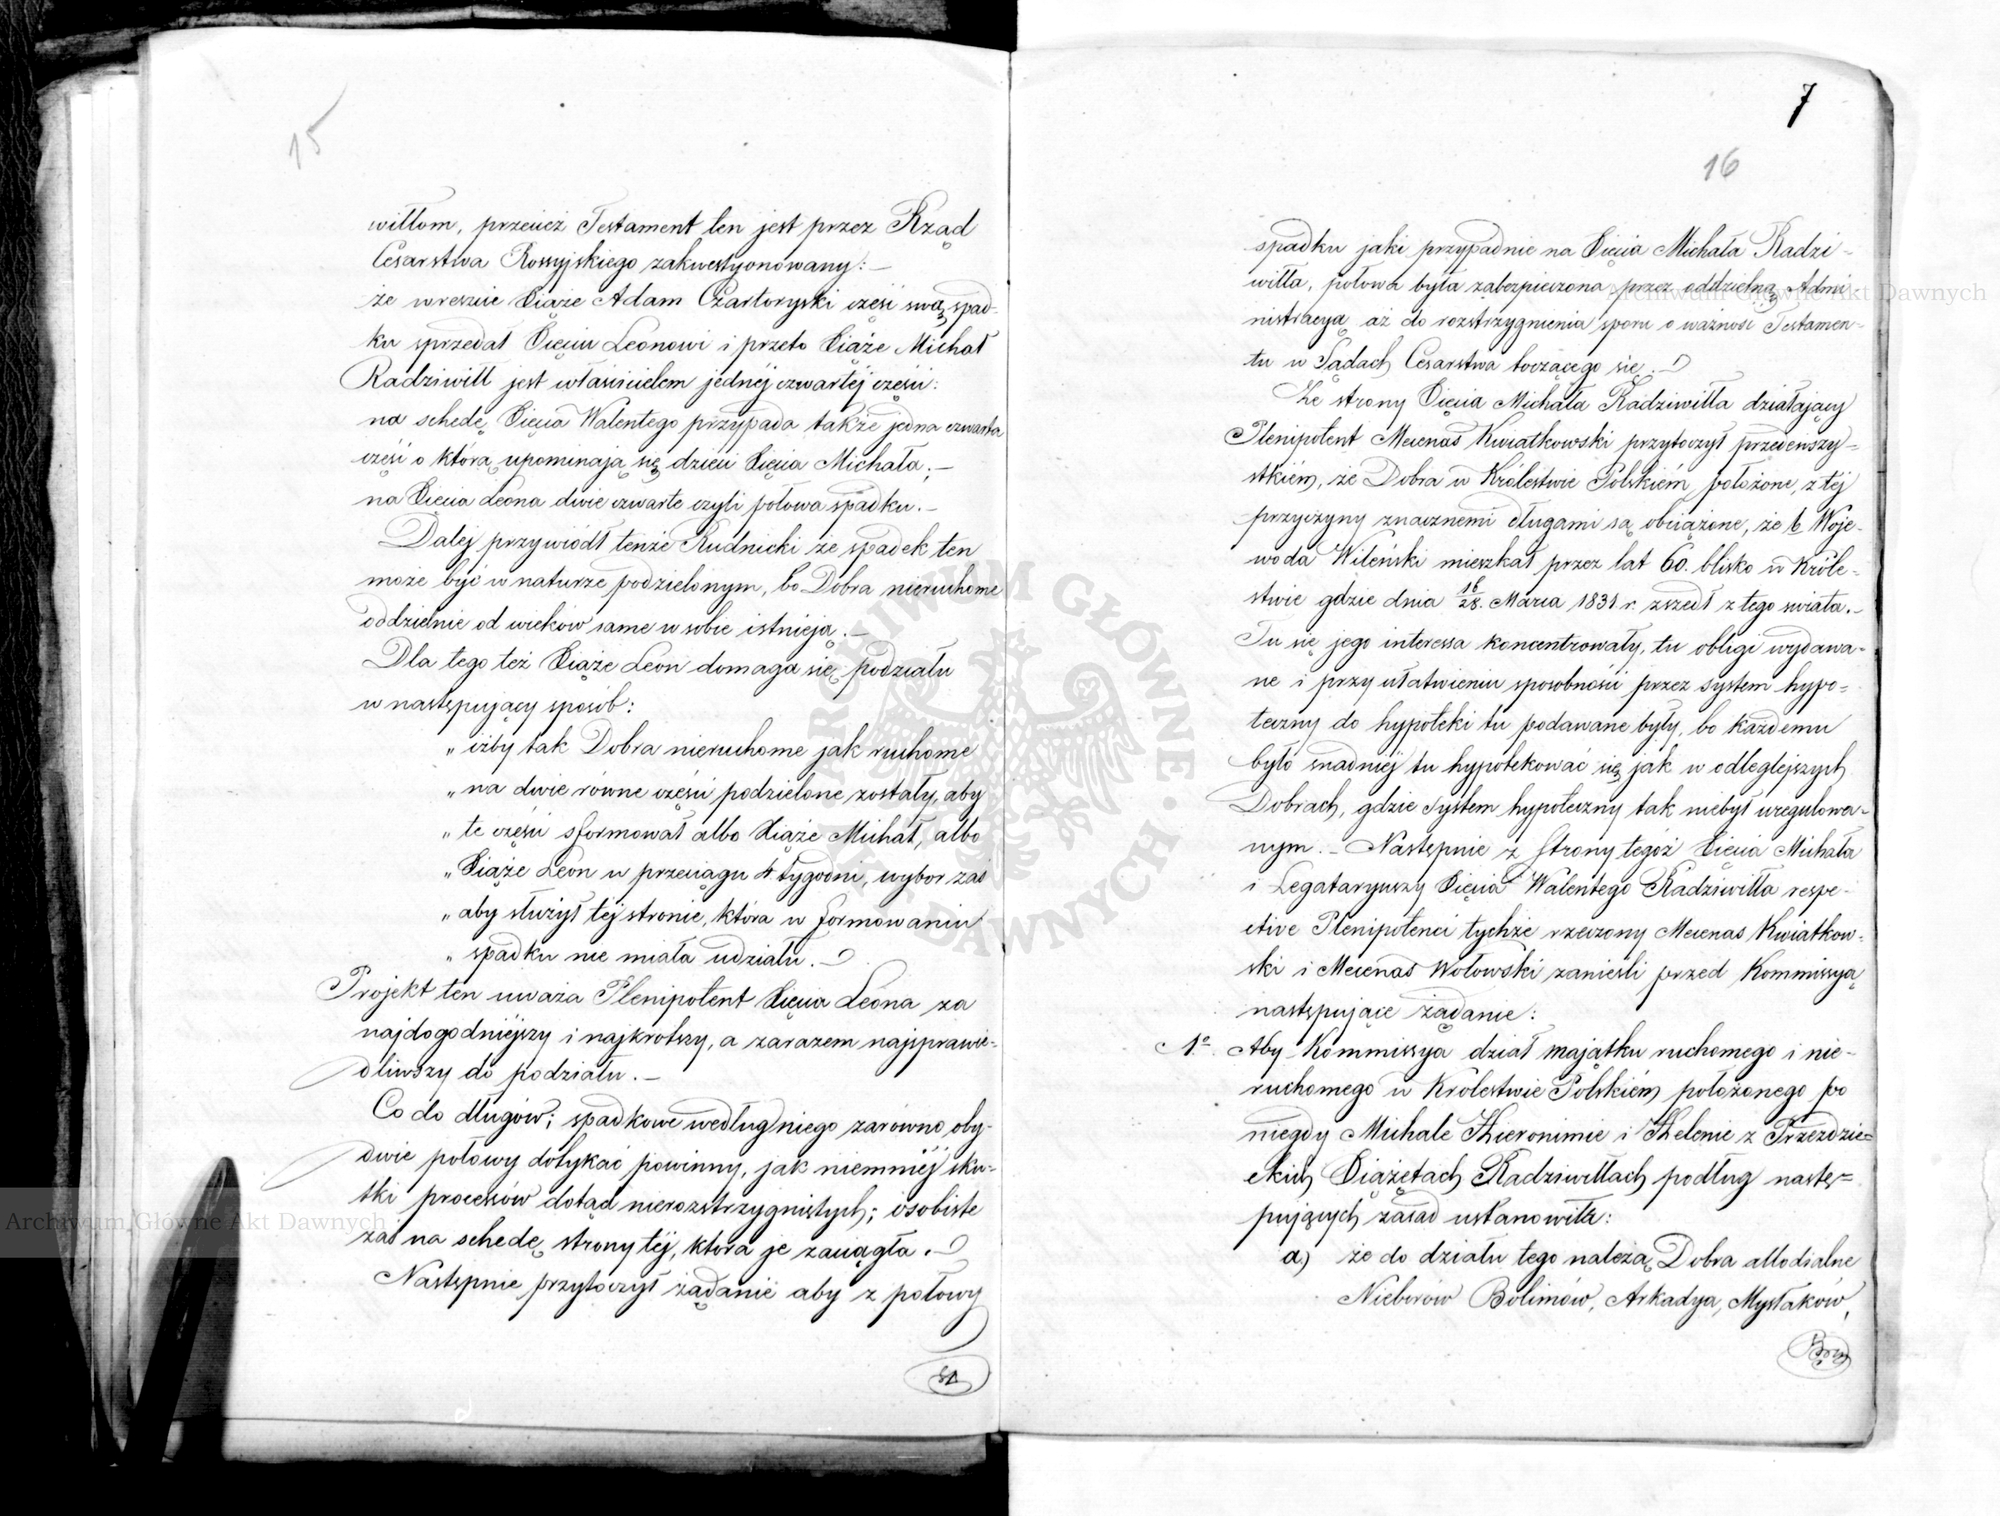 15
willom, przecież Testament ten jest przez Rząd
Cesarstwa Rossyjskiego zakwestyonowany: –
że wreszcie Xiąże Adam Czartoryski część swą spad-
ku sprzedał Xięciu Leonowi i przeto Xiąże Michał
Radziwiłł jest właścicielem jednéj czwartéj części:
na schedę Xięcia Walentego przypada także jedna czwarta
część o którą upominają się dzieci Xięcia Michała; –
na Xięcia Leona dwie czwarte czyli połowa spadku. –
Daléj przywiódł tenże Rudnicki że spadek ten
może być w naturze podzielonym, bo Dobra nieruchome
oddzielnie od wieków same w sobie istnieją. –
Dla tego też Xiąże Leon domaga się podziału
w następujący sposób:
„ iżby tak Dobra nieruchome jak ruchome
„ na dwie równe części podzielone zostały, aby
„ te części sformował albo Xiąże Michał, albo
„ Xiąże Leon w przeciągu 4 tygodni, wybor zaś
„ aby służył téj stronie, która w formowaniu
„ spadku nie miała udziału. –
Projekt ten uważa Plenipotent Xięcia Leona za
najdogodniejszy i najkrotszy, a zarazem najsprawie-
dliwszy do podziału. –
Co do długów; spadkowe według niego zarówno oby-
dwie połowy dotykać powinny, jak niemniéj sku-
tki processów dotąd nierozstrzygniętych; osobiste
zaś na schedę strony téj, która je zaciągła. –
Następnie przytoczył żądanie aby z połowy
7
16
spadku jaki przypadnie na Xięcia Michała Radzi-
wiłła, połowa była zabezpieczona przez oddzielną Admi
nistracyą aż do rozstrzygnienia sporu o ważność Testamen-
tu w Sądach Cesarstwa toczącego się. –
Ze strony Xięcia Michała Radziwiłła działający
Plenipotent Mecenas Kwiatkowski przytoczył przedewszy-
stkiém, że Dobra w Królestwie Polskiém położone, z téj
przyczyny znacznemi długami są obciążone, że b. Woje-
woda Wileński mieszkał przez lat 60. blisko w Króle-
stwie gdzie dnia 16/28. Marca 1831 r. zszedł z tego świata. –
Tu się jego interessa koncentrowały, tu obligi wydawa-
ne i przy ułatwieniu sposobności przez system hypo-
teczny do hypoteki tu podawane były, bo każdemu
było snadniéj tu hypotekować się jak w odleglejszych
Dobrach, gdzie system hypoteczny tak niebył uregulowa-
nym. – Następnie z strony tegoż Xięcia Michała
i Legataryuszy Xięcia Walentego Radziwiłła respe-
ctive Plenipotenci tychże rzeczony Mecenas Kwiatkow-
ski i Mecenas Wołowski zanieśli przed Kommissyą
następujące żądanie:
1º. Aby Kommissya dział majątku ruchomego i nie-
ruchomego w Królestwie Polskiém położonego po
niegdy Michale Hieronimie i Helenie z Przeździe-
ckich Xiążętach Radziwiłłach podług nastę-
pujących zasad ustanowiła:
a) że do działu tego należą Dobra allodialne
Nieborów Bolimów, Arkadya, Mysłaków,
Archiwum Główne Akt Dawnych
Archiwum Główne Akt Dawnych
ARCHIWUM GŁÓWNE AKT DAWNYCH